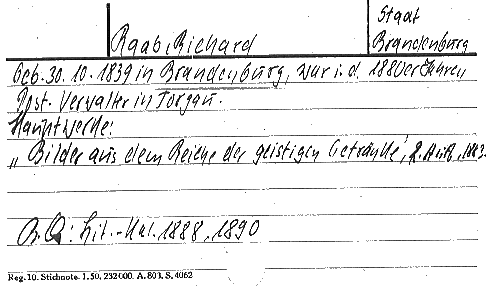 Staat
Raab, Richard Brandenburg
Geb. 30. 10. 1839 in Brandenburg, war i. d. 1880er Jahren
Post-Verwalter in Torgau.
Hauptwerke:
„Bilder aus dem Reiche der geistigen Getränke", 2. Aufl., 1883.
B. Q.: Lit.-Kal. 1888, 1890
Reg. 10. Stichnote. 1. 50, 232000. A. 803. S. 4062